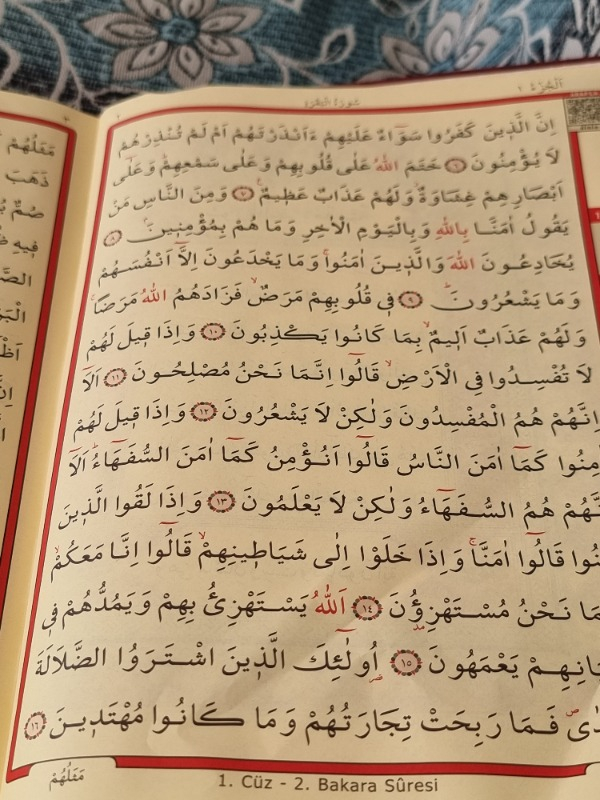 اَلْجُزْءُ ١
سُورَةُ الْبَقَرَةِ
اِنَّ الَّذ۪ينَ كَفَرُوا سَوَٓاءٌ عَلَيْهِمْ ءَاَنْذَرْتَهُمْ اَمْ لَمْ تُنْذِرْهُمْ
لَا يُؤْمِنُونَ ﴿٦﴾ خَتَمَ اللّٰهُ عَلٰى قُلُوبِهِمْ وَعَلٰى سَمْعِهِمْۜ وَعَلٰٓى
اَبْصَارِهِمْ غِشَاوَةٌۘ وَلَهُمْ عَذَابٌ عَظ۪يمٌ۟ ﴿٧﴾ وَمِنَ النَّاسِ مَنْ
يَقُولُ اٰمَنَّا بِاللّٰهِ وَبِالْيَوْمِ الْاٰخِرِ وَمَا هُمْ بِمُؤْمِن۪ينَۢ ﴿٨﴾
يُخَادِعُونَ اللّٰهَ وَالَّذ۪ينَ اٰمَنُواۚ وَمَا يَخْدَعُونَ اِلَّٓا اَنْفُسَهُمْ
وَمَا يَشْعُرُونَۜ ﴿٩﴾ ف۪ي قُلُوبِهِمْ مَرَضٌۙ فَزَادَهُمُ اللّٰهُ مَرَضًاۚ
وَلَهُمْ عَذَابٌ اَل۪يمٌۙ بِمَا كَانُوا يَكْذِبُونَ ﴿١٠﴾ وَاِذَا ق۪يلَ لَهُمْ
لَا تُفْسِدُوا فِي الْاَرْضِۙ قَالُٓوا اِنَّمَا نَحْنُ مُصْلِحُونَ ﴿١١﴾ اَلَٓا
اِنَّهُمْ هُمُ الْمُفْسِدُونَ وَلٰكِنْ لَا يَشْعُرُونَ ﴿١٢﴾ وَاِذَا ق۪يلَ لَهُمْ
اٰمِنُوا كَمَٓا اٰمَنَ النَّاسُ قَالُٓوا اَنُؤْمِنُ كَمَٓا اٰمَنَ السُّفَهَٓاءُۜ اَلَٓا
نَّهُمْ هُمُ السُّفَهَٓاءُ وَلٰكِنْ لَا يَعْلَمُونَ ﴿١٣﴾ وَاِذَا لَقُوا الَّذ۪ينَ
نُوا قَالُٓوا اٰمَنَّاۚ وَاِذَا خَلَوْا اِلٰى شَيَاط۪ينِهِمْۙ قَالُٓوا اِنَّا مَعَكُمْۙ
مَا نَحْنُ مُسْتَهْزِؤُ۫نَ ﴿١٤﴾ اَللّٰهُ يَسْتَهْزِئُ بِهِمْ وَيَمُدُّهُمْ ف۪ي
يَانِهِمْ يَعْمَهُونَ ﴿١٥﴾ اُو۬لٰٓئِكَ الَّذ۪ينَ اشْتَرَوُا الضَّلَالَةَ
دٰىۖ فَمَا رَبِحَتْ تِجَارَتُهُمْ وَمَا كَانُوا مُهْتَد۪ينَ ﴿١٦﴾
مَثَلُهُمْ
1. Cüz - 2. Bakara Sûresi
مَثَلُهُمْ
ذَهَبَ
صُمٌّ
ف۪يهِ